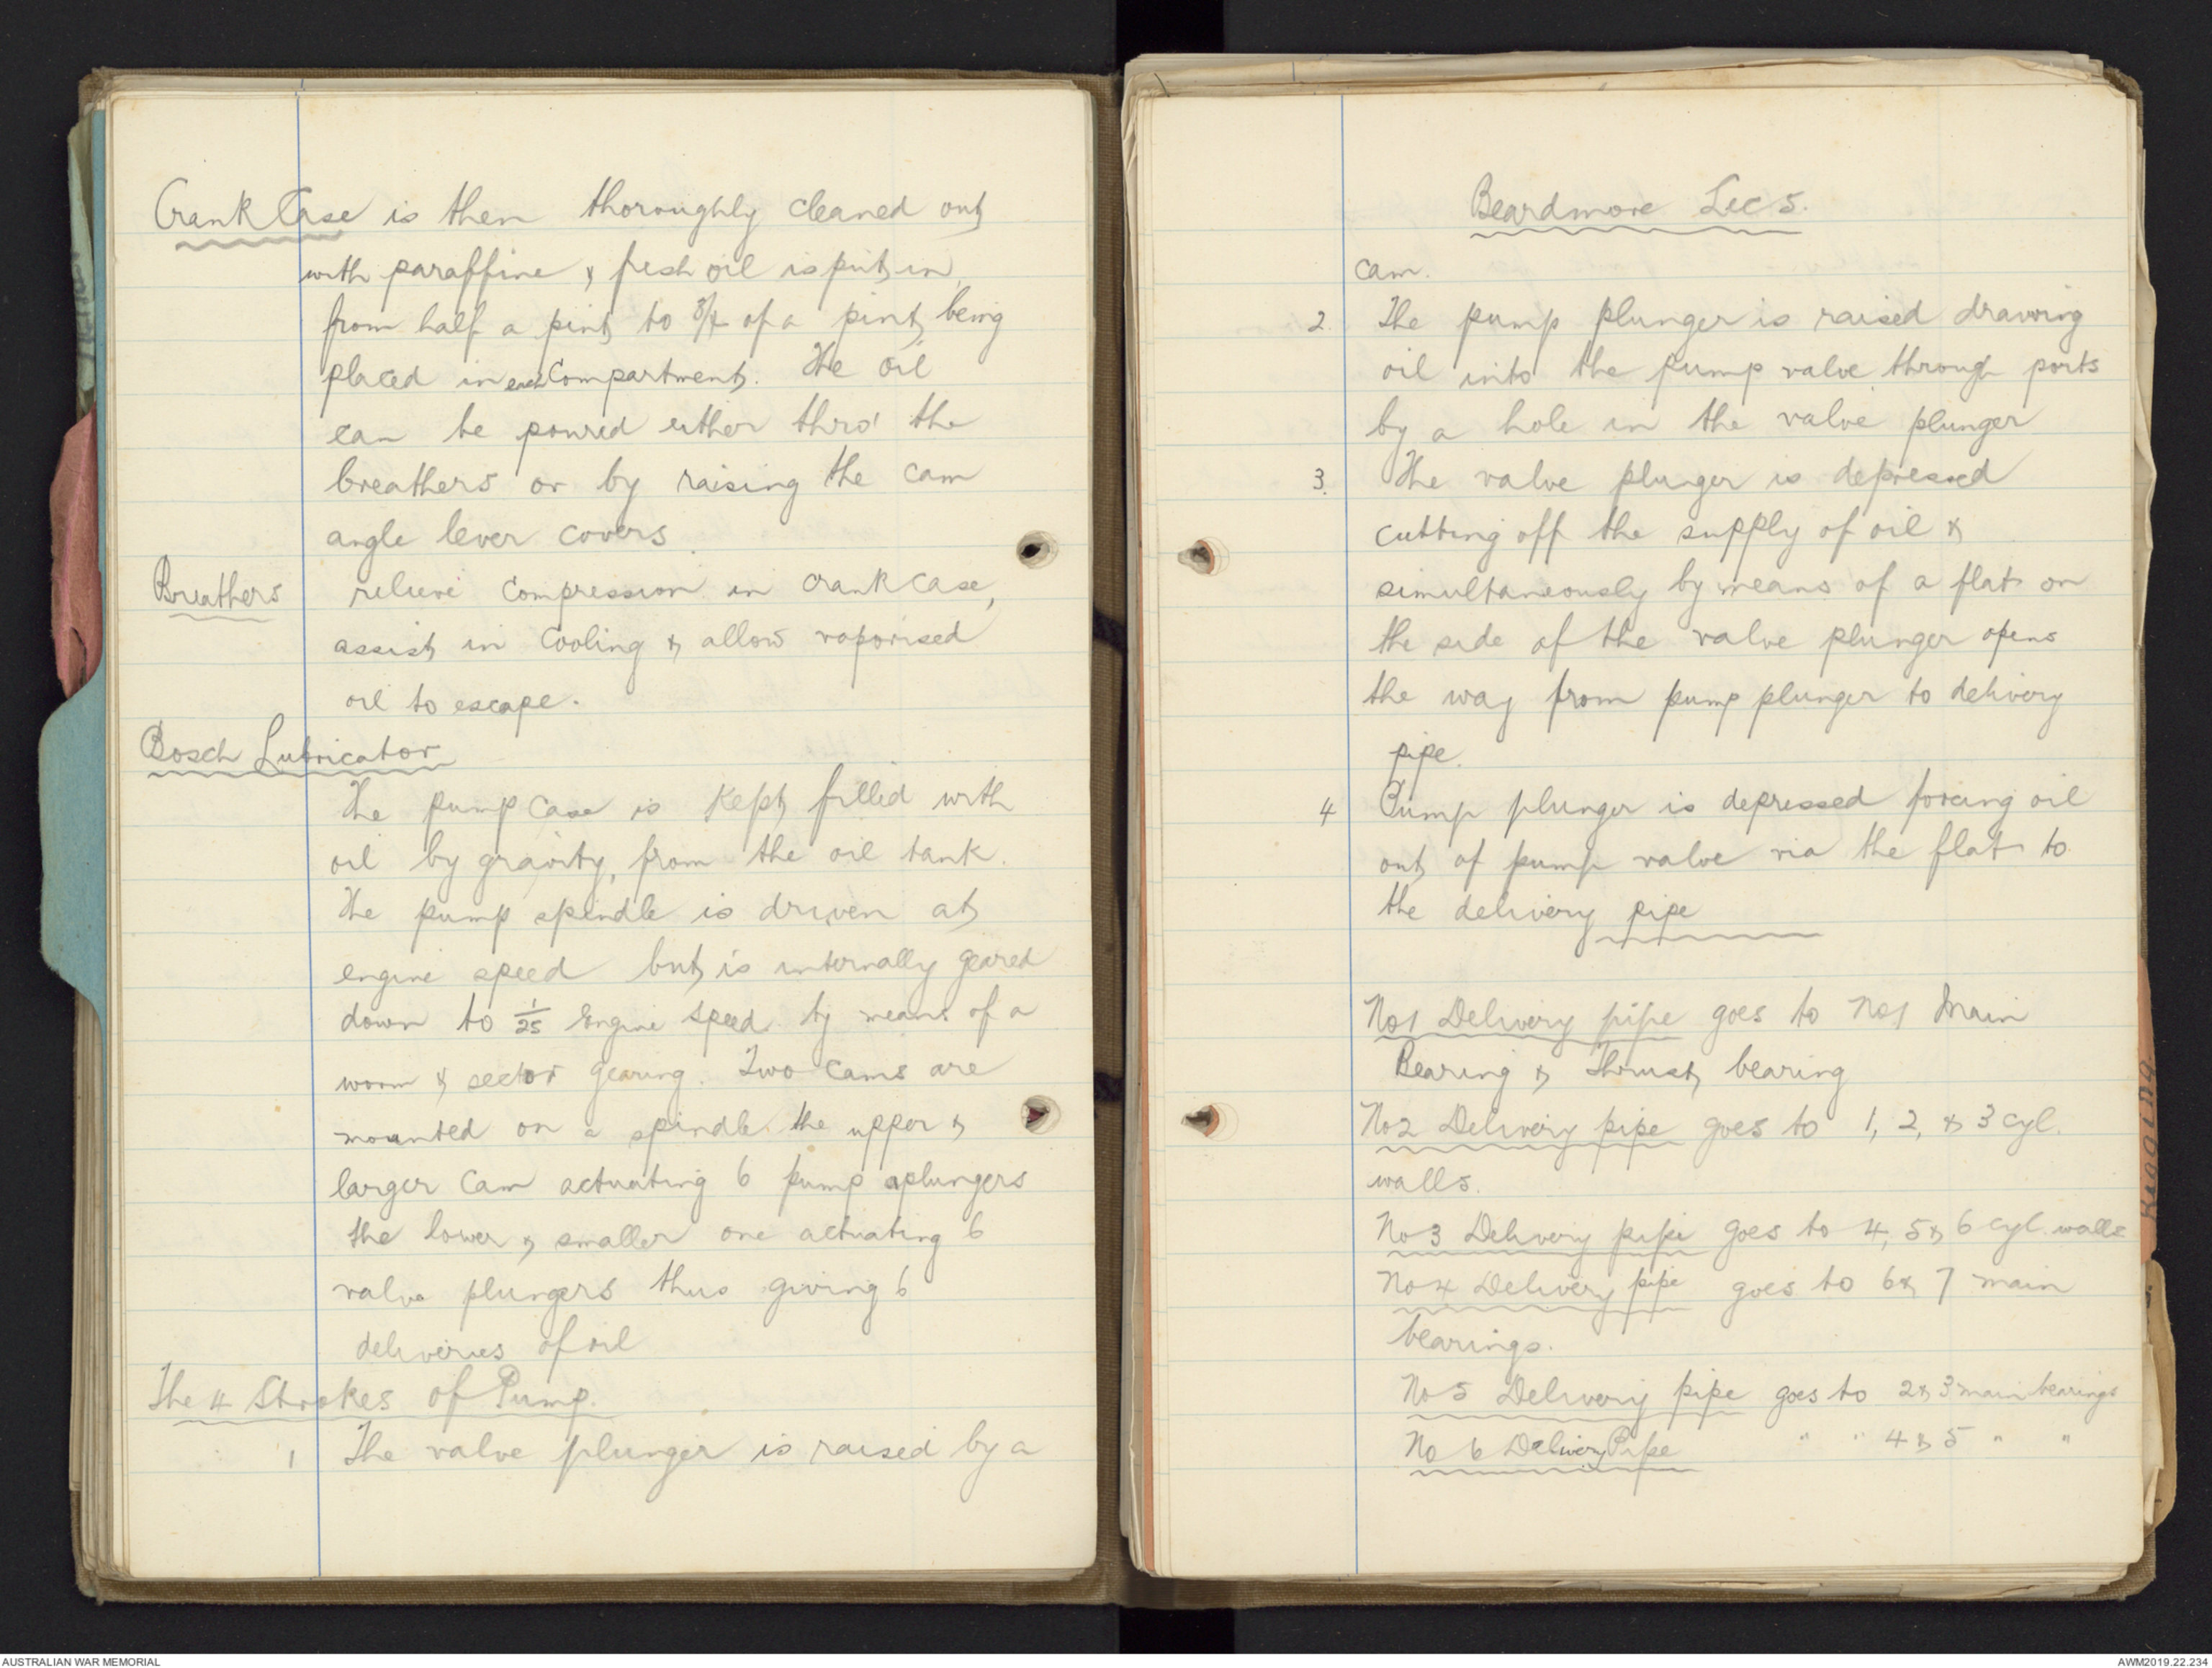 Crank Case is then thoroughly cleaned out
with paraffine & fresh oil is put in
from half a pint to 3/4 of a pint being
placed in each Compartment. The oil
can be poured either thro' the
breathers or by raising the cam
angle lever covers
Breathers relieve Compression in crank case,
assist in Cooling & allow vaporised
oil to escape.
Bosch Lubricator
The pump case is kept filled with
oil by gravity, from the oil tank.
The pump spindle is driven at
engine speed but is internally geared
down to 1/25 Engine Speed by means of a
worm & sector gearing. Two cams are
mounted on a spindle the upper &
larger Cam actuating 6 pump plungers
the lower & smaller one actuating 6
valve plungers thus giving 6
deliveries of oil
The 4 Strokes of Pump.
1 The valve plunger is raised by a
Beardmore Lec 5.
cam.
2. The pump plunger is raised drawing
oil into the pump valve through ports
by a hole in the valve plunger
3. The valve plunger is depressed
cutting off the supply of oil &
simultaneously by means of a flat on
the side of the valve plunger opens
the way from pump plunger to delivery
pipe.
4 Pump plunger is depressed forcing oil
out of pump valve via the flat to
the delivery pipe
No 1 Delivery pipe goes to No 1 Main
Bearing & Thrust bearing
No 2 Delivery pipe goes to 1, 2, & 3 cyl.
walls.
No 3 Delivery pipe goes to 4, 5 & 6 cyl. walls
No 4 Delivery pipe goes to 6 & 7 main
bearings.
No 5 Delivery pipe goes to 2 & 3 main bearings
No 6 Delivery Pipe " " 4 & 5 " "
Rigging
AUSTRALIAN WAR MEMORIAL
AWM2019.22.234